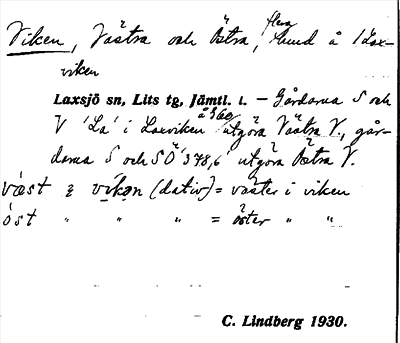 Viken, Västra och Östra, flera hmd å 1 Lax-
viken
Laxsjö sn, Lits tg, Jämtl. l. – Gårdarna S och
V 'La' i Laxviken å 360 utgöra Västra V., går-
darna S och SÖ '378,6' utgöra Östra V.
væst i vikan (dativ) = väster i viken
öst " " " = öster " "
C. Lindberg 1930.